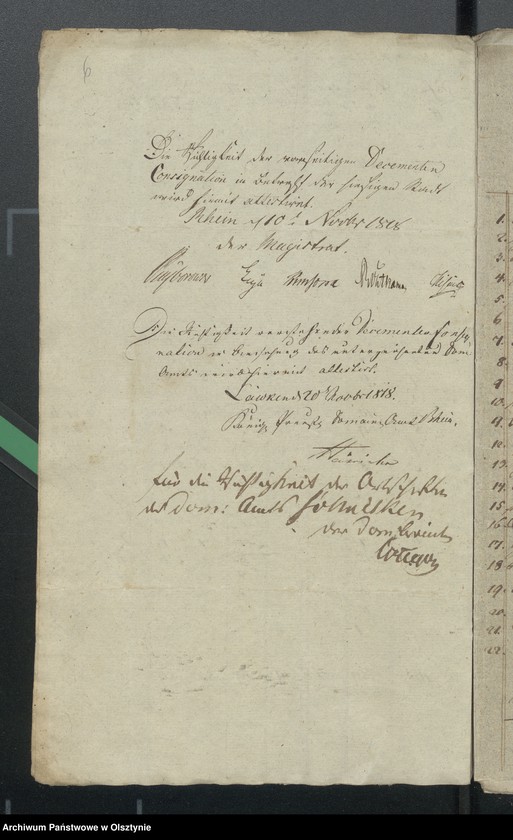 6
Die Richtigkeit der vorseitigen Decementen
Consignation in Betreff der hiesigen Stadt
wird hiemit attestirt.
Rhein d 10t Novbr 1818
der Magistrat.
Die Richtigkeit vorstehender Decementen Consig-
nation in Beziehung des unterzeichneten Dom.
Amts wird hiermit attestirt.
20 Novbr 1818.
Königl. Preuß. Domainen Amt Rhein.
für die Richtigkeit der Ortschaften
des Dom: Amts
der Dom.
1.
2.
3.
4.
5.
6
7.
8.
9.
10.
11.
12.
13.
14.
15.
16.
17.
18.
19.
20.
21.
22.
Archiwum Państwowe w Olsztynie